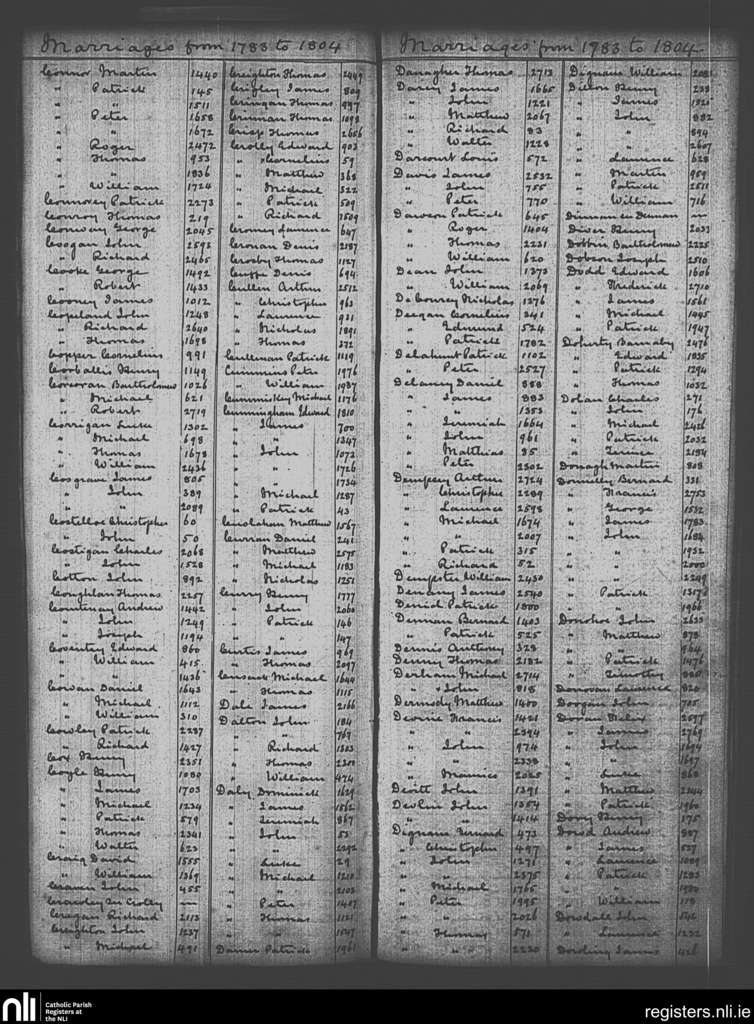 Marriages from 1783 to 1804
Connor Martin 1440
" Patrick 145
" " 1511
" Peter 1658
" " 1672
" Roger 2472
" Thomas 953
" " 1836
" William 1724
Patrick 2273
Conroy Thomas 219
Conway George 2045
Coogan John 2593
" Richard 2465
Cooke George 1492
" Robert 1433
Cooney James 1012
Copeland John 1248
" Richard 2640
" Thomas 1698
Copper Cornelius 991
Corballis Henry 1149
Corcoran Bartholomew 1026
" Michael 621
" Robert 2719
Corrigan Luke 1302
" Michael 698
" Thomas 1678
" William 2436
Cosgrave James 805
" John 389
" " 2089
Costelloe Christopher 60
" John 50
Costigan Charles 2068
" John 1528
Cotton John 892
Coughlan Thomas 2257
Courtenay Andrew 1442
" John 1249
" Joseph 1194
Coventry Edward 860
" William 415
" " 1436
Cowan Daniel 1643
" Michael 1112
" William 310
Cowley Patrick 2287
" Richard 1427
Cox Henry 2351
Coyle Henry 1080
" James 1703
" Michael 1234
" Patrick 579
" Thomas 2341
" Walter 623
Craig David 1555
" William 1369
Craven John 455
Crawley see Crolly —
Creagan Richard 2113
Creighton John 1237
" Michael 491
Creighton Thomas 2449
Crigley James 809
Crinigan Thomas 997
Crinnan Thomas 1098
Crisp Thomas 2656
Crolly Edward 903
" Cornelius 59
" Matthew 368
" Michael 322
" Patrick 509
" Richard 2509
Cromey Laurence 647
Cronan Denis 2187
Crosby Thomas 1127
Cuffe Denis 694
Cullen Arthur 2512
" Christopher 963
" Laurence 921
" Nicholas 1891
" Thomas 272
Culleman Patrick 1119
Cummins Peter 1976
" William 1987
Cummiskey Michael 1176
Cunningham Edward 1810
" James 700
" " 1347
" John 1072
" " 1726
" " 1734
" Michael 1287
" Patrick 43
Matthew 1567
Curran Daniel 241
" Matthew 2575
" Michael 1183
" Nicholas 1251
Curry Henry 1777
" John 2060
" Patrick 146
" " 147
Curtis James 969
" Thomas 2097
Cusack Michael 1644
" Thomas 1115
Dale James 2166
Dalton John 184
" " 769
" Richard 1303
" Thomas
" William 474
Daly Dominick 1629
" James 1562
" Jeremiah 867
" John 53
" " 2292
" Luke 29
" Michael 1210
" " 2103
" Peter 1407
" Thomas 1121
" " 1547
Patrick 1961
Marriages from 1783 to 1804
Danagher Thomas 2713
Darcy James 1665
" John 1221
" Matthew 2067
" Richard 83
" Walter 1228
Darcourt Louis 572
Davis James 2532
" John 755
" Peter 770
Dawson Patrick 645
" Roger 1404
" Thomas 2231
" William 620
Dean John 1273
" William 2069
De Courcy Nicholas 1276
Deegan Cornelius 241
" Edmund 524
" Patrick 1782
Delahunt Patrick 1102
" Peter 2527
Delaney Daniel 888
" James 883
" " 1353
" Jeremiah 1664
" John 961
" Matthias 85
" Peter 2302
Dempsey Arthur 2724
" Christopher 2289
" Laurence 2598
" Michael 1674
" " 2007
" Patrick 315
" Richard 52
Dempster William 2430
Denany James 2540
Denid Patrick 1800
Dennan Bernard 1403
" Patrick 525
Dennis Anthony 328
Denny Thomas 2182
Derham Michael 2714
" John 818
Dermody Matthew 1400
Devine Francis 1421
" " 2394
" John 974
" " 2338
" Maurice 2025
Devitt John 1391
Devlin John 1354
" " 1414
Dignam Bernard 473
" Christopher 497
" John 1271
" " 2375
" Michael 1765
" Peter 1995
" " 2026
" Thomas 571
" " 2220
Dignam William
Dillon Henry 238
" James
" John 882
" " 894
" " 2607
" Laurence 628
" Martin 959
" Patrick 2511
" William 716
—
Diver Henry 2033
Dobbin Bartholomew 2225
Dobson Joseph 2510
Dodd Edward 1606
" Frederick 2710
" James 1561
" Michael 1445
" Patrick 1947
Doherty Barnaby 2476
" Edward 1835
" Patrick 1294
" Thomas 1032
Dolan Charles 271
" John 176
" Michael 2426
" Patrick 2032
" Terence 2184
Donagh Martin 808
Donnelly Bernard 331
" Francis 2753
" George 1532
" James 1783
" John 1684
" " 1932
" " 2000
" " 2249
" Patrick
" " 1966
Donohoe John 2633
" Matthew 878
" " 964
" Patrick 1476
" Timothy
Donovan Laurence 820
Doogan John 705
Doran Felix 2597
" James 2769
" John 1694
" " 1697
" Luke 868
" Matthew 2344
" Patrick 1960
Dory Henry 175
Dowd Andrew 887
" James 537
" Laurence 1099
" Patrick 1283
" "
" William 118
Dowdall John 542
" Laurence 1232
Dowling James 426
nli
Catholic Parish
Registers at
the NLI
registers.nli.ie